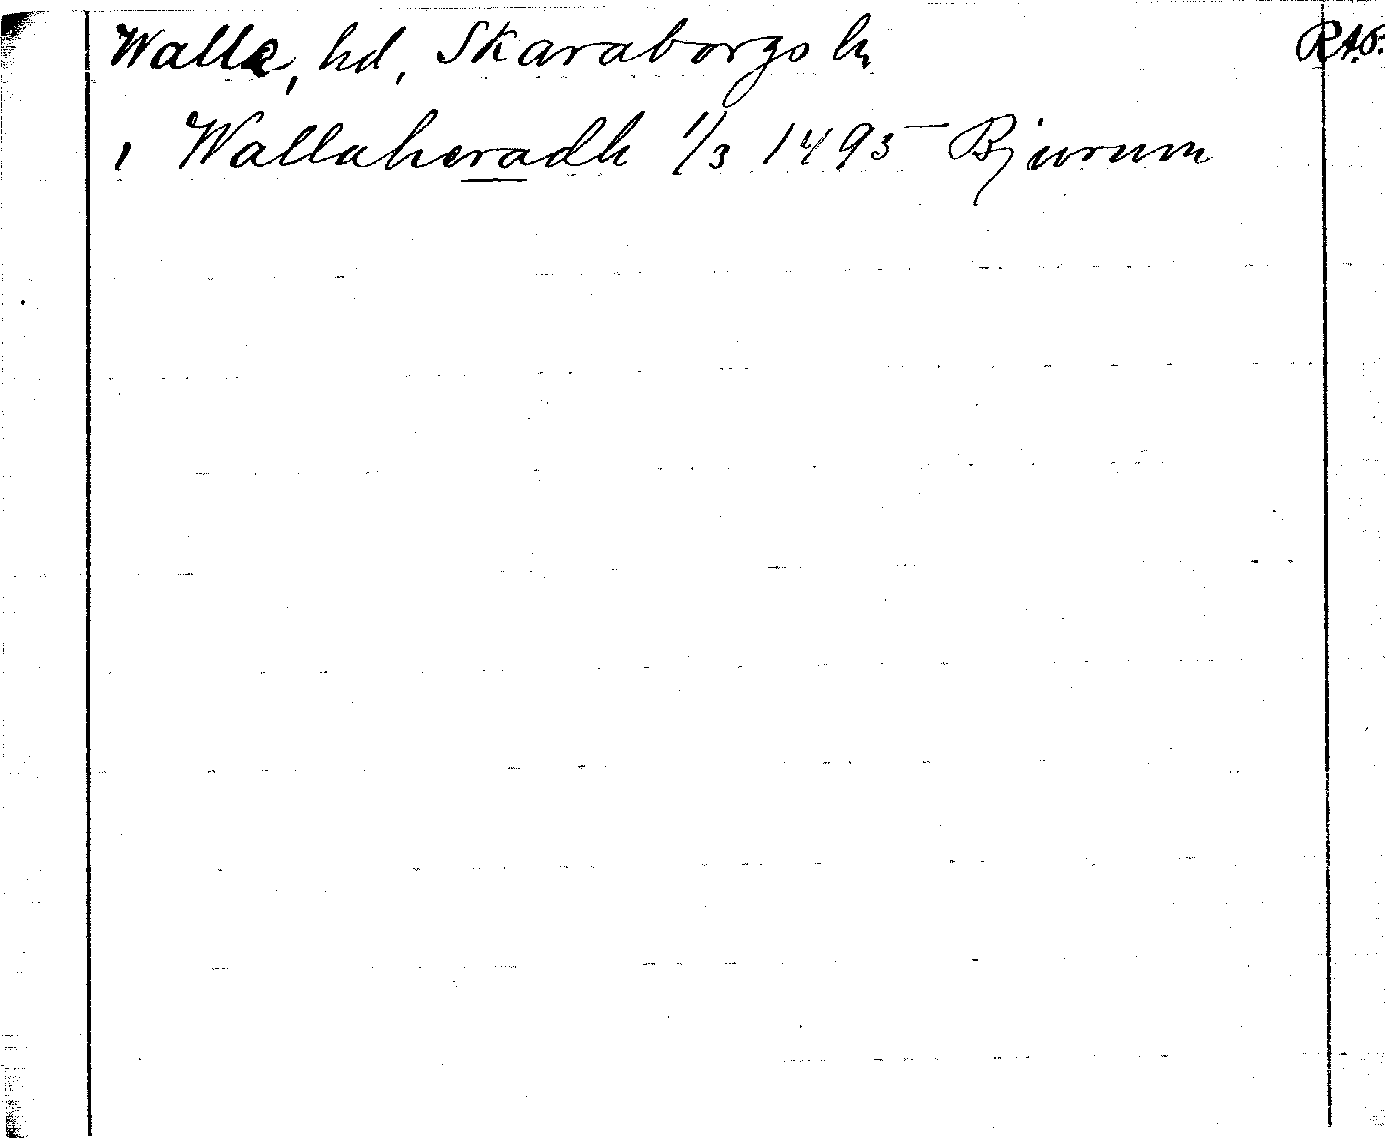 Walle, hd, Skaraborgs ln RAP.
, Wallaheradh 1/3 1495 Bjurum